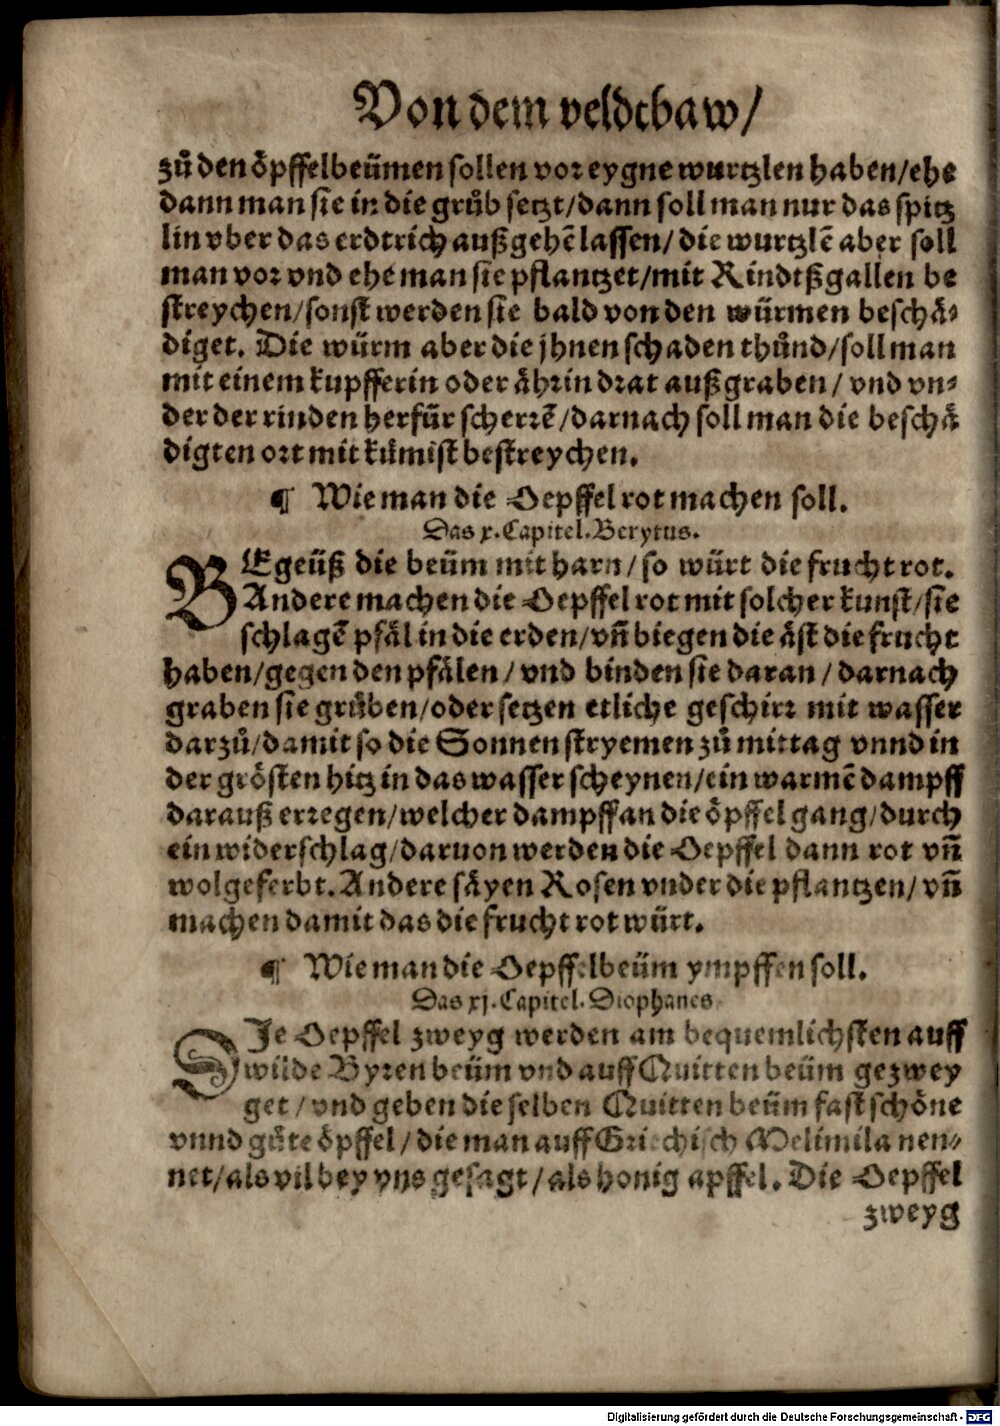 Von dem veldtbaw/
zů den öpffelbeümen sollen vor eygne wurtzlen haben/ehe
dann man sie in die grůb setzt/dann soll man nur das spitz
lin vber das erdtrich außgehē lassen/ die wurtzlē aber soll
man vor vnd ehe man sie pflantzet/mit Rindtßgallen be
streychen/sonst werden sie bald von den würmen beschä⸗
diget. Die würm aber die jhnen schaden thůnd/soll man
mit einem kupfferin oder ährin drat außgraben/ vnd vn⸗
der der rinden herfür scherrē/darnach soll man die beschä
digten ort mit kümist bestreychen.
¶ Wie man die Oepffel rot machen soll.
Das x. Capitel. Berytus.
BEgeüß die beüm mit harn/so würt die frucht rot.
Andere machen die Oepffel rot mit solcher kunst/sie
schlagē pfäl in die erden/vñ biegen die äst die frucht
haben/gegen den pfälen/ vnd binden sie daran/ darnach
graben sie grůben/oder setzen etliche geschirr mit wasser
darzů/damit so die Sonnen stryemen zů mittag vnnd in
der grösten hitz in das wasser scheynen/ein warmē dampff
darauß erregen/welcher dampff an die öpffel gang/durch
ein widerschlag/daruon werden die Oepffel dann rot vñ
wolgeferbt. Andere säyen Rosen vnder die pflantzen/ vñ
machen damit das die frucht rot würt.
¶ Wie man die Oepffelbeüm ympffen soll.
Das xj. Capitel. Diophanes
DJe Oepffel zweyg werden am bequemlichsten auff
wilde Byren beüm vnd auff Quitten beüm gezwey
get/ vnd geben die selben Quitten beüm fast schöne
vnnd gůte öpffel/ die man auff Griechisch Melimila nen⸗
net/als vil bey vns gesagt/als honig apffel. Die Oepffel
zweyg
Digitalisierung gefördert durch die Deutsche Forschungsgemeinschaft - DFG